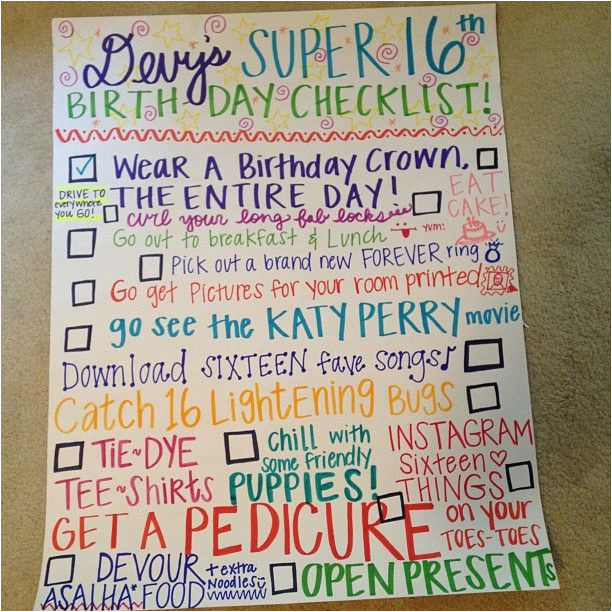 Devy's SUPER 16th
BIRTH-DAY CHECKLIST!
WEAR A BiRthday CROWN,
THE ENTIRE DAY!
DRIVE TO
everywhere
you GO!
EAT
CAKE!
curl your long fab locks
Go out to breakfast & Lunch
yum!
Pick out a brand new FOREVER ring
Go get Pictures for your room printed
go see the KATY PERRY movie
Download SIXTEEN fave songs
Catch 16 LightEning Bugs
TiE~DYE
TEE~Shirts
chill with
some friendly
PUPPIES!
INSTAGRAM
Sixteen
THINGS
GET A PEDICURE
on your
TOES-TOES
DEVOUR
ASAIHA* FOOD
+extra
Noodles
OPEN PRESENTs